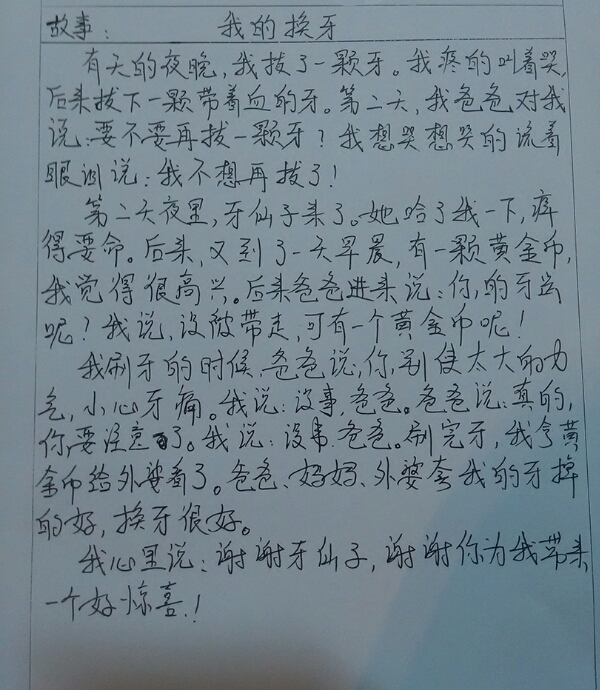 故事： 我的换牙
有天的夜晚，我拔了一颗牙。我疼的叫着哭，
后来拔下一颗带着血的牙。第二天，我爸爸对我
说：要不要再拔一颗牙？我想哭想哭的流着
眼泪说：我不想再拔了！
第二天夜里，牙仙子来了。她哈了我一下，痒
得要命。后来，又到了一天早晨，有一颗黄金币，
我觉得很高兴。后来爸爸进来说：你的牙齿
呢？我说，没被带走，可有一个黄金币呢！
我刷牙的时候，爸爸说，你，别使太大的力
气，小心牙痛。我说：没事，爸爸。爸爸说：真的，
你要注意了。我说：没事，爸爸。刷完牙，我拿黄
金币给外婆看了。爸爸、妈妈、外婆夸我的牙掉
的好，换牙很好。
我心里说：谢谢牙仙子，谢谢你为我带来
一个好惊喜！